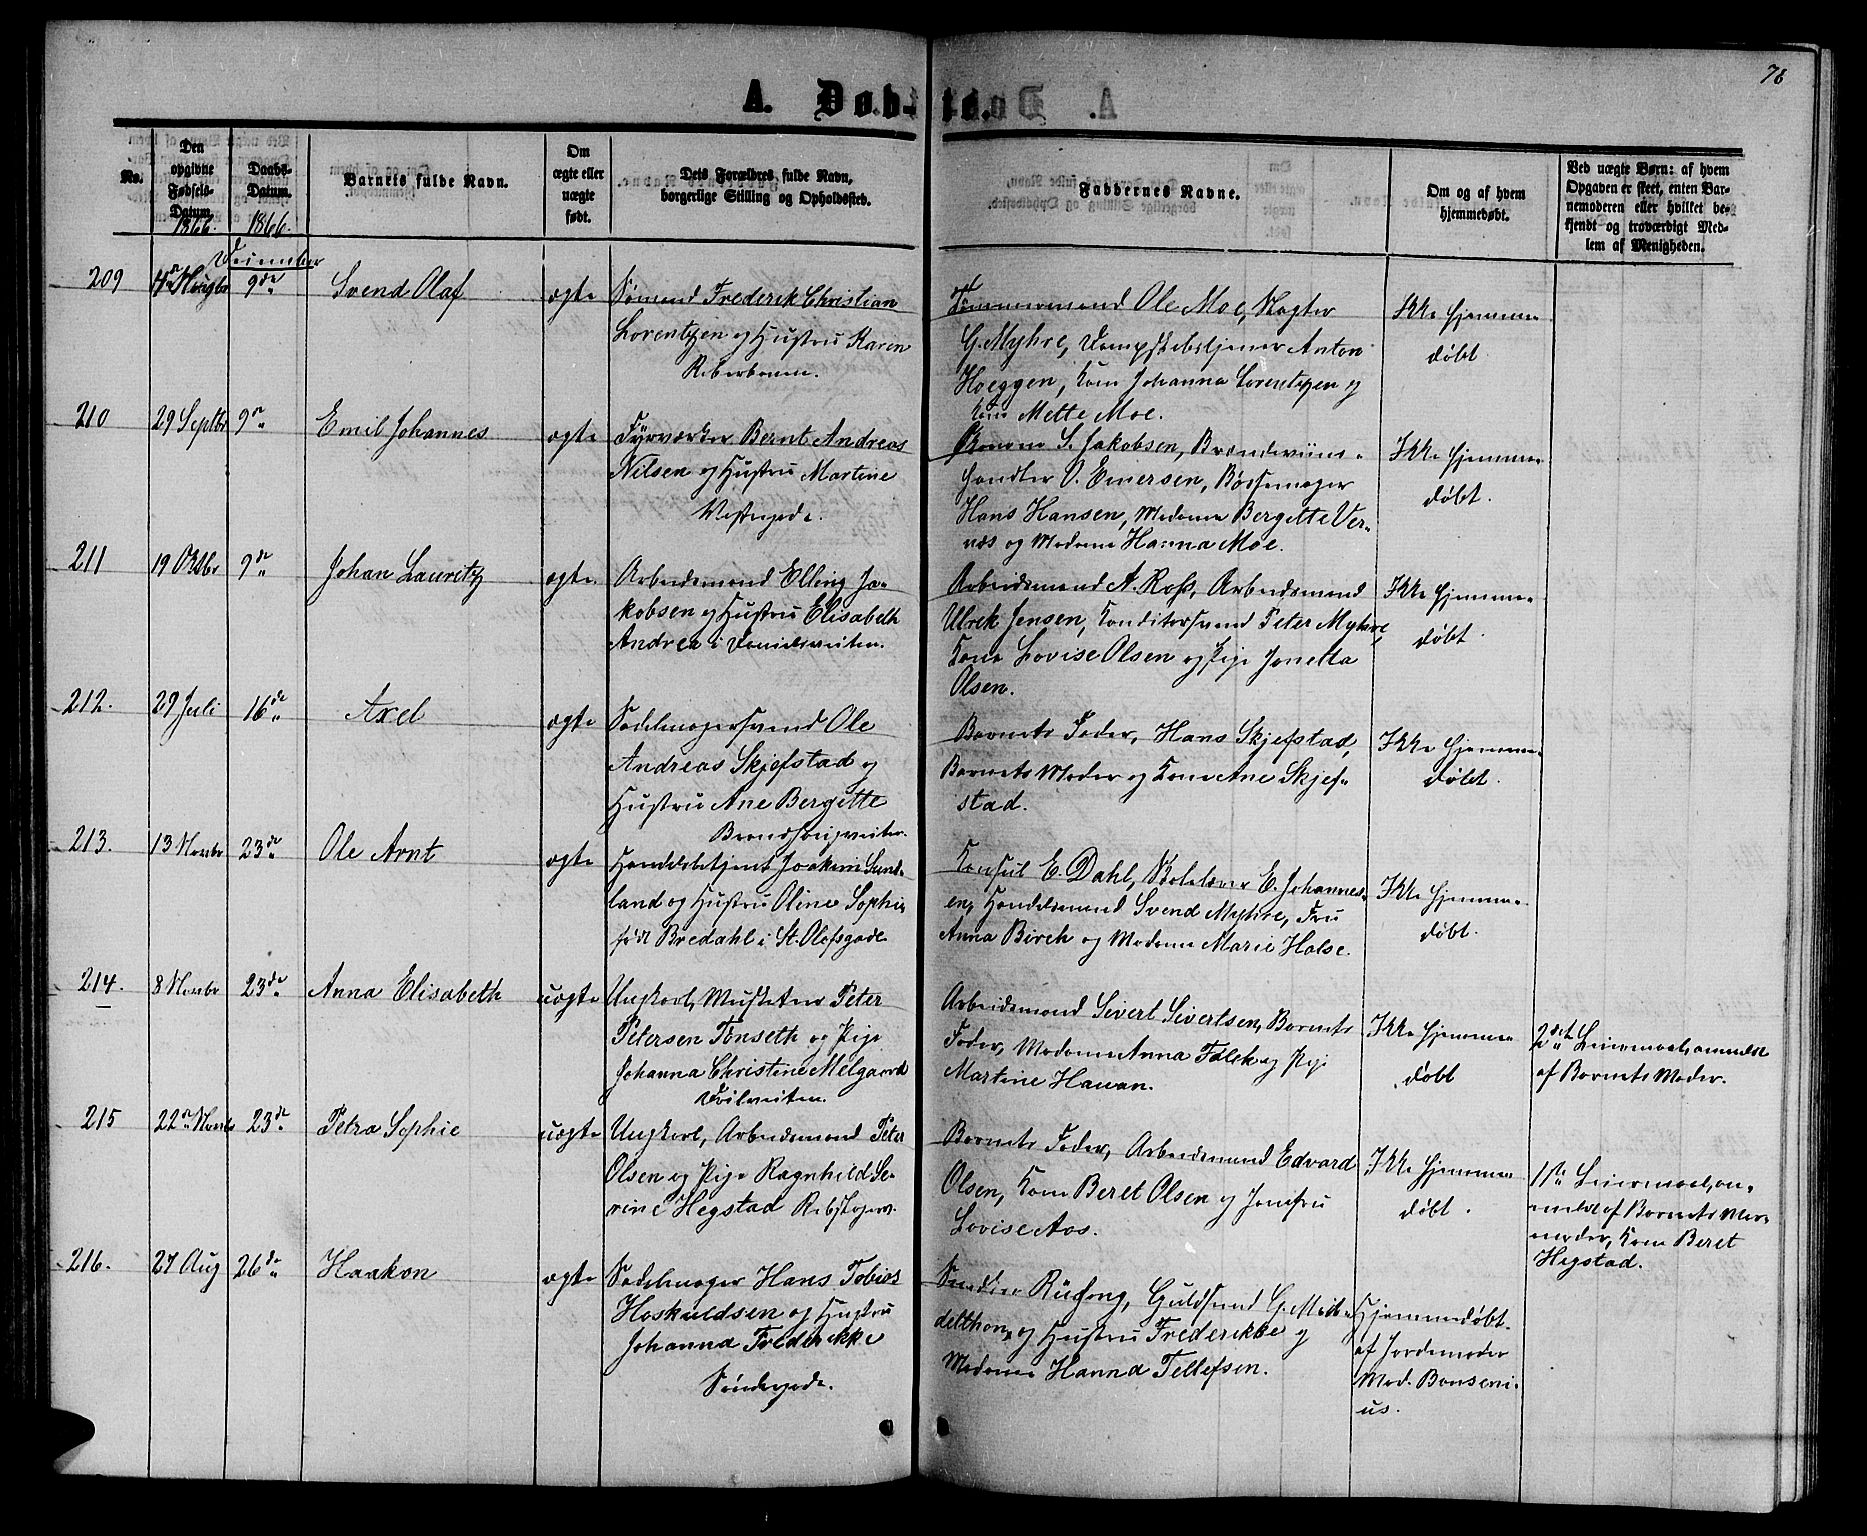 78
A. Døb-te.
No.
Den opgivne Fødsels-Datum.
1866.
Daabs-Datum.
1866.
Barnets fulde Navn.
Om ægte eller uægte født.
Dets Forældres fulde Navn, borgerlige Stilling og Opholdssted.
Faddernes Navne.
Om og af hvem hjemmedøbt.
Ved uægte Børn: af hvem Opgaven er skeet, enten Barnemoderen eller hvilket bekjendt og troværdigt Medlem af Menigheden.
December
209
9de
Svend Olaf
ægte
Sømand Frederik Christian
Lorentzen og Hustru Karen
Tømmermand Ole Moe, Vægter
G. Myhre, Dampskibstjener Anton
Hoeggen, Kone Johanna Lorentzen og
Kone Mette Moe.
Ikke hjemme-
døbt.
210
29 Septbr
9de
Emil Johannes
ægte
Fyrværker Bernt Andreas
Nilsen og Hustru Martine
Vestergade.
S. Jakobsen, Brændeviins-
handler O. Einersen, Bøssemager
Hans Hansen, Madame Bergitte Ver-
næs og Madame Hanna Moe.
Ikke hjemme-
døbt.
211
19 Oktbr
9de
Johan Lauritz
ægte
Arbeidsmand Elling Ja-
kobsen og Hustru Elisabeth
Andrea i Danielsveiten.
Arbeidsmand A. Ross, Arbeidsmand
Ulrek Jensen, Konditorsvend Peter Myhre,
Kone Lovise Olsen og Pige Jonetta
Olsen.
Ikke hjemme-
døbt.
212.
29 Juli
16de
Axel
ægte
Sadelmagersvend Ole
Andreas Skjefstad og
Hustru Ane Bergitte
Barnets Fader, Hans Skjefstad,
Barnets Moder og Kone Ane Skjef-
stad.
Ikke hjemme-
døbt.
213.
13 Novbr
23de
Ole Arnt
ægte
Handelsbetjent Joakim Sund-
land og Hustru Oline Sophie
født Bredahl i St. Olafsgade
Konsul E. Dahl, Skolelærer E. Johannes-
en, Handelsmand Svend Myhre, Fru
Anna Birch og Madame Marie Halse.
Ikke hjemme-
døbt.
214.
8 Novbr
23de
Anna Elisabeth
uægte
Ungkarl, Musketeer Peter
Petersen Tønseth og Pige
Johanna Christine Melgaard
Arbeidsmand Sivert Sivertsen, Barnets
Fader, Madame Anna Falck og Pige
Martine Hawan.
Ikke hjemme-
døbt
2det Leiermaal, anmeldt
af Barnets Moder.
215
22de Novbr
23de
Petra Sophie
uægte
Ungkarl, Arbeidsmand Peter
Olsen og Pige Ragnhild Se-
rine Hegstad
Barnets Fader, Arbeidsmand Edvard
Olsen, Kone Beret Olsen og Jomfru
Lovise Aas.
Ikke hjemme-
døbt.
1ste Leiermaal, an-
meldt af Barnets Mor-
moder, Kone Beret
Hegstad.
216.
27 Aug
26de
Haakon
ægte
Sadelmager Hans Tobias
Hoskuldsen og Hustru
Johanna Frederikke
Søndregade.
Snedker Riising, Guldsmed G. Mid-
delthon, og Hustru Frederikke og
Madame Hanna Tellefsen.
Hjemmedøbt
af Jordemoder
Mad. Bonseni-
us.